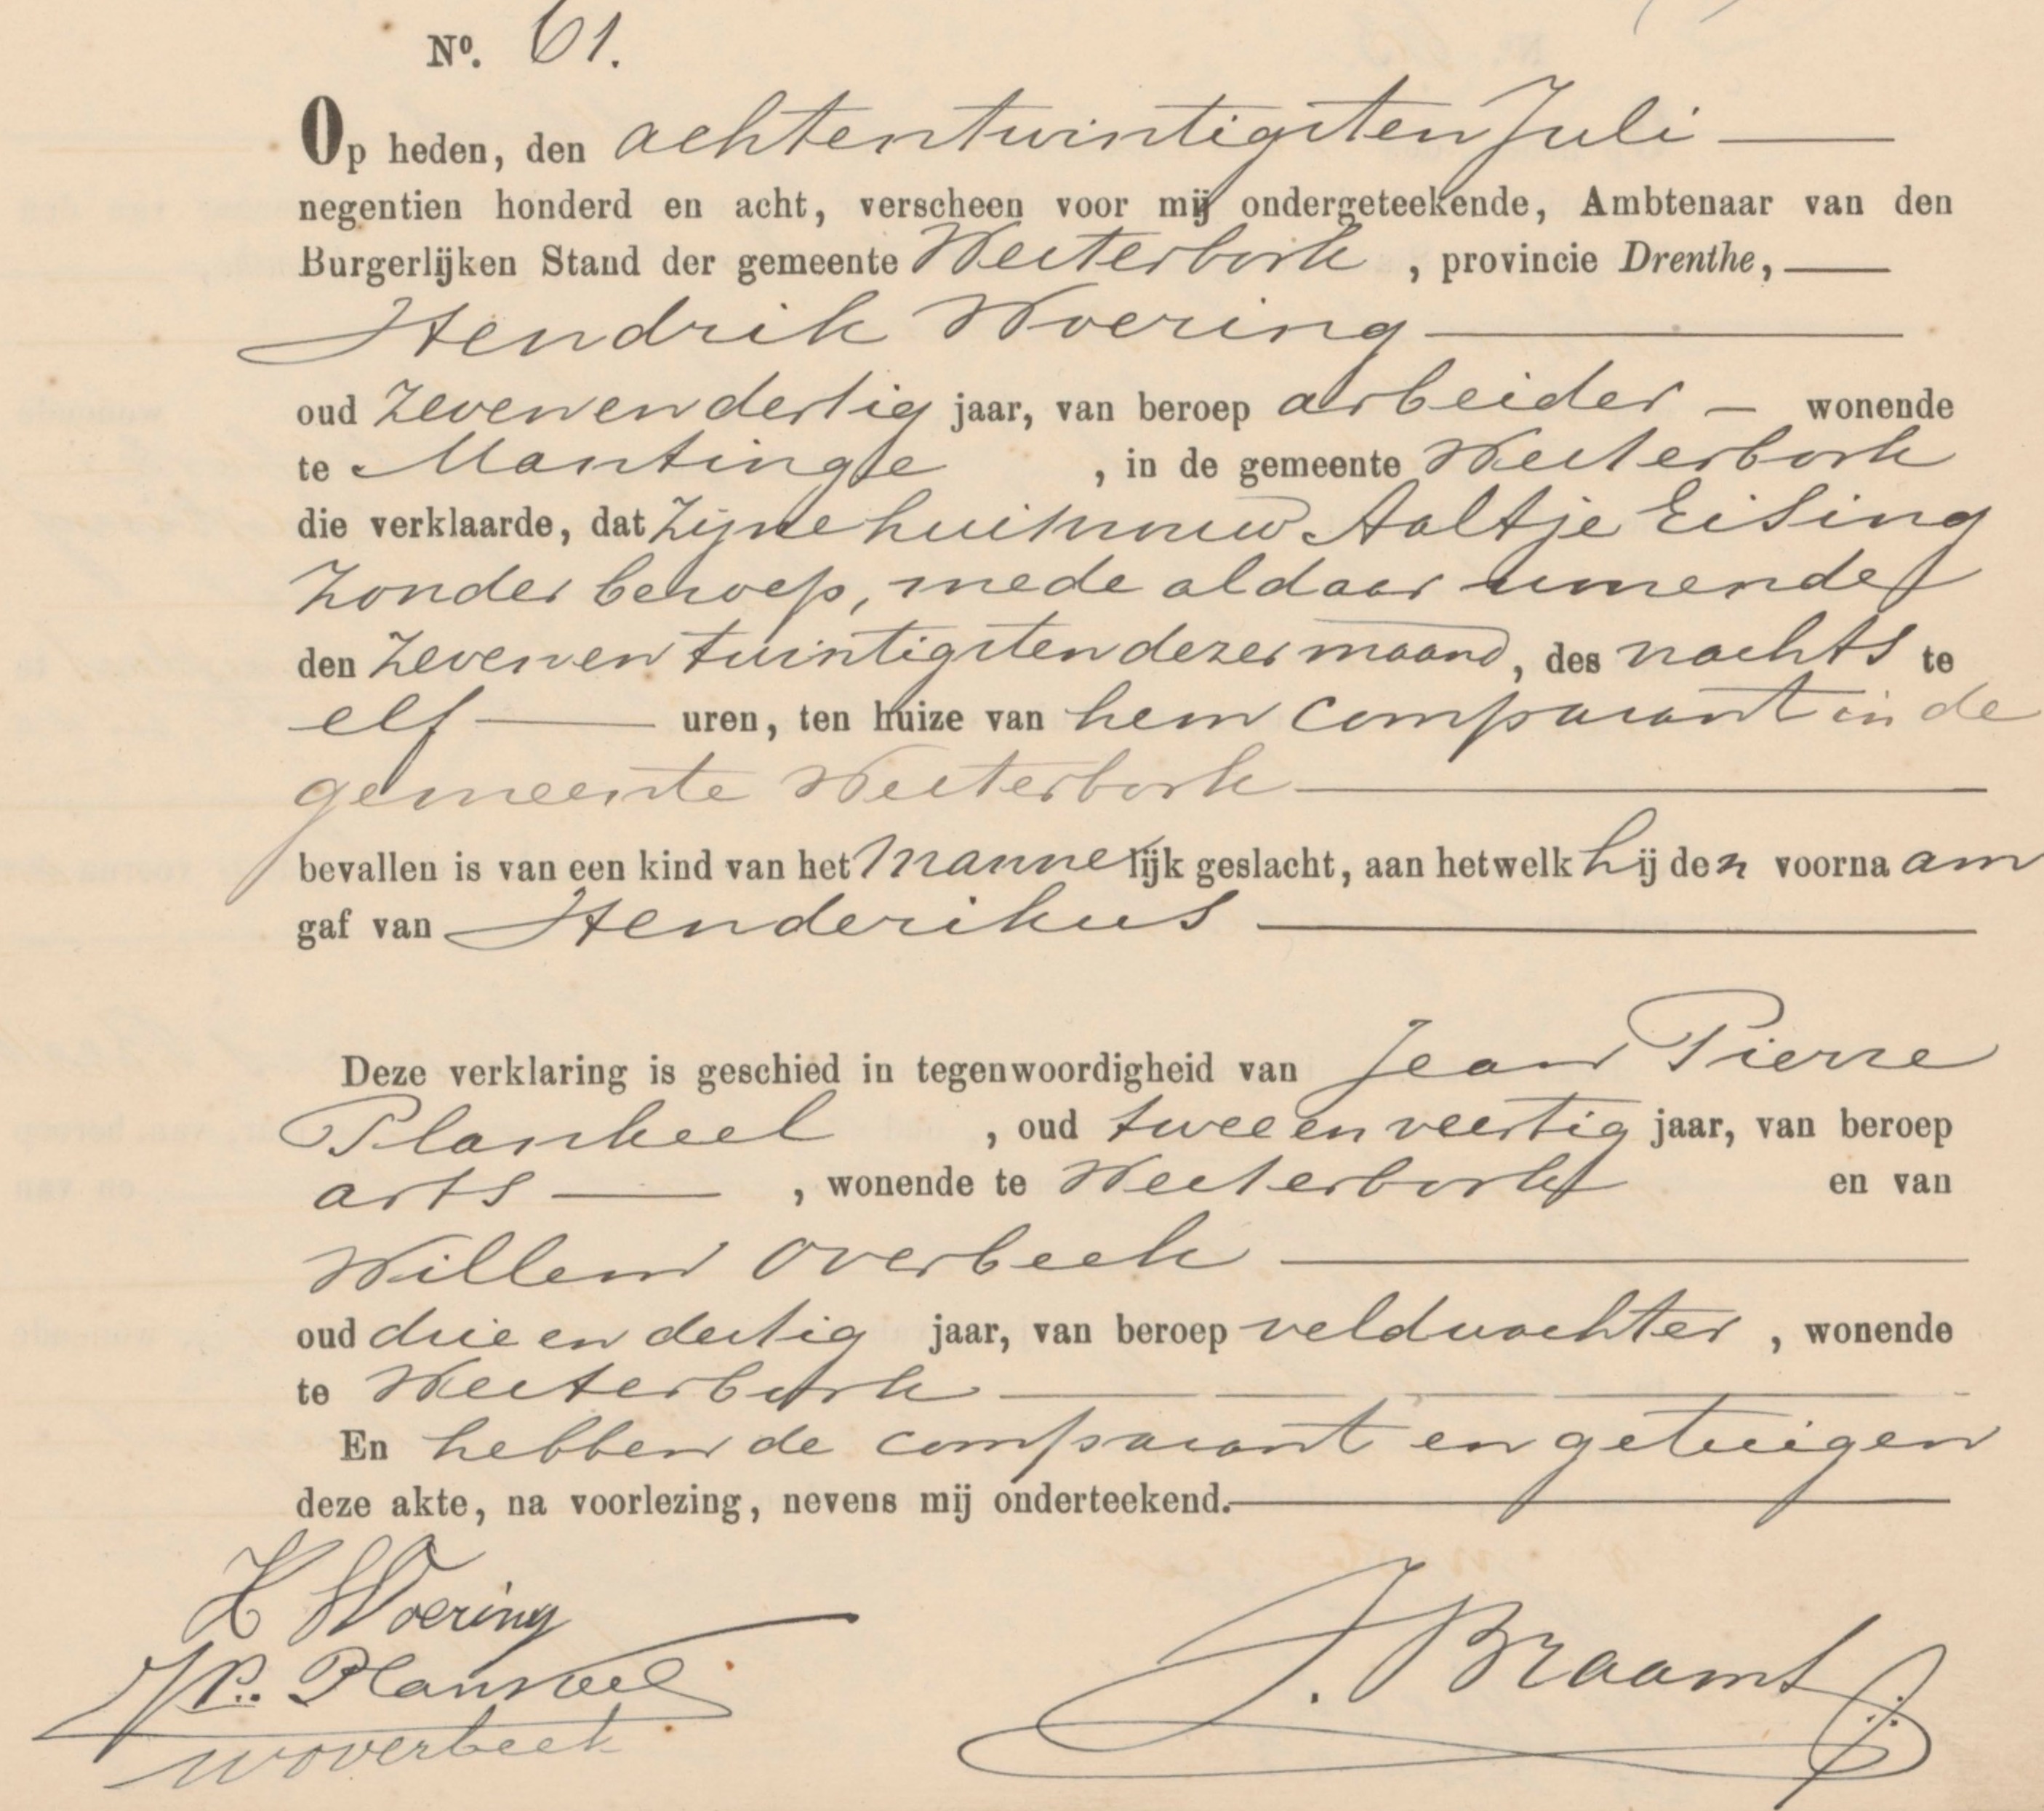 Nº. 61.
Op heden, den achtentwintigsten Juli
negentien honderd en acht, verscheen voor mij ondergeteekende, Ambtenaar van den
Burgerlijken Stand der gemeente Westerbork, provincie Drenthe,
Hendrik Woering
oud zevenendertig jaar, van beroep arbeider wonende
te Mantinge, in de gemeente Westerbork
die verklaarde, dat zijne huisvrouw Aaltje Eising
zonder beroep, mede aldaar wonende
den zevenentwintigsten dezer maand, des nachts te
elf uren, ten huize van hem comparant in de
gemeente Westerbork
bevallen is van een kind van het mannelijk geslacht, aan hetwelk hij den voornaam
gaf van Henderikus
Deze verklaring is geschied in tegenwoordigheid van Jean Pierre
Plankeel, oud tweeenveertig jaar, van beroep
arts, wonende te Westerbork en van
Willem Overbeek
oud drieendertig jaar, van beroep veldwachter, wonende
te Westerbork
En hebben de comparant en getuigen
deze akte, na voorlezing, nevens mij onderteekend.
H Woering
JP. Plankeel
W Overbeek
J. Braams